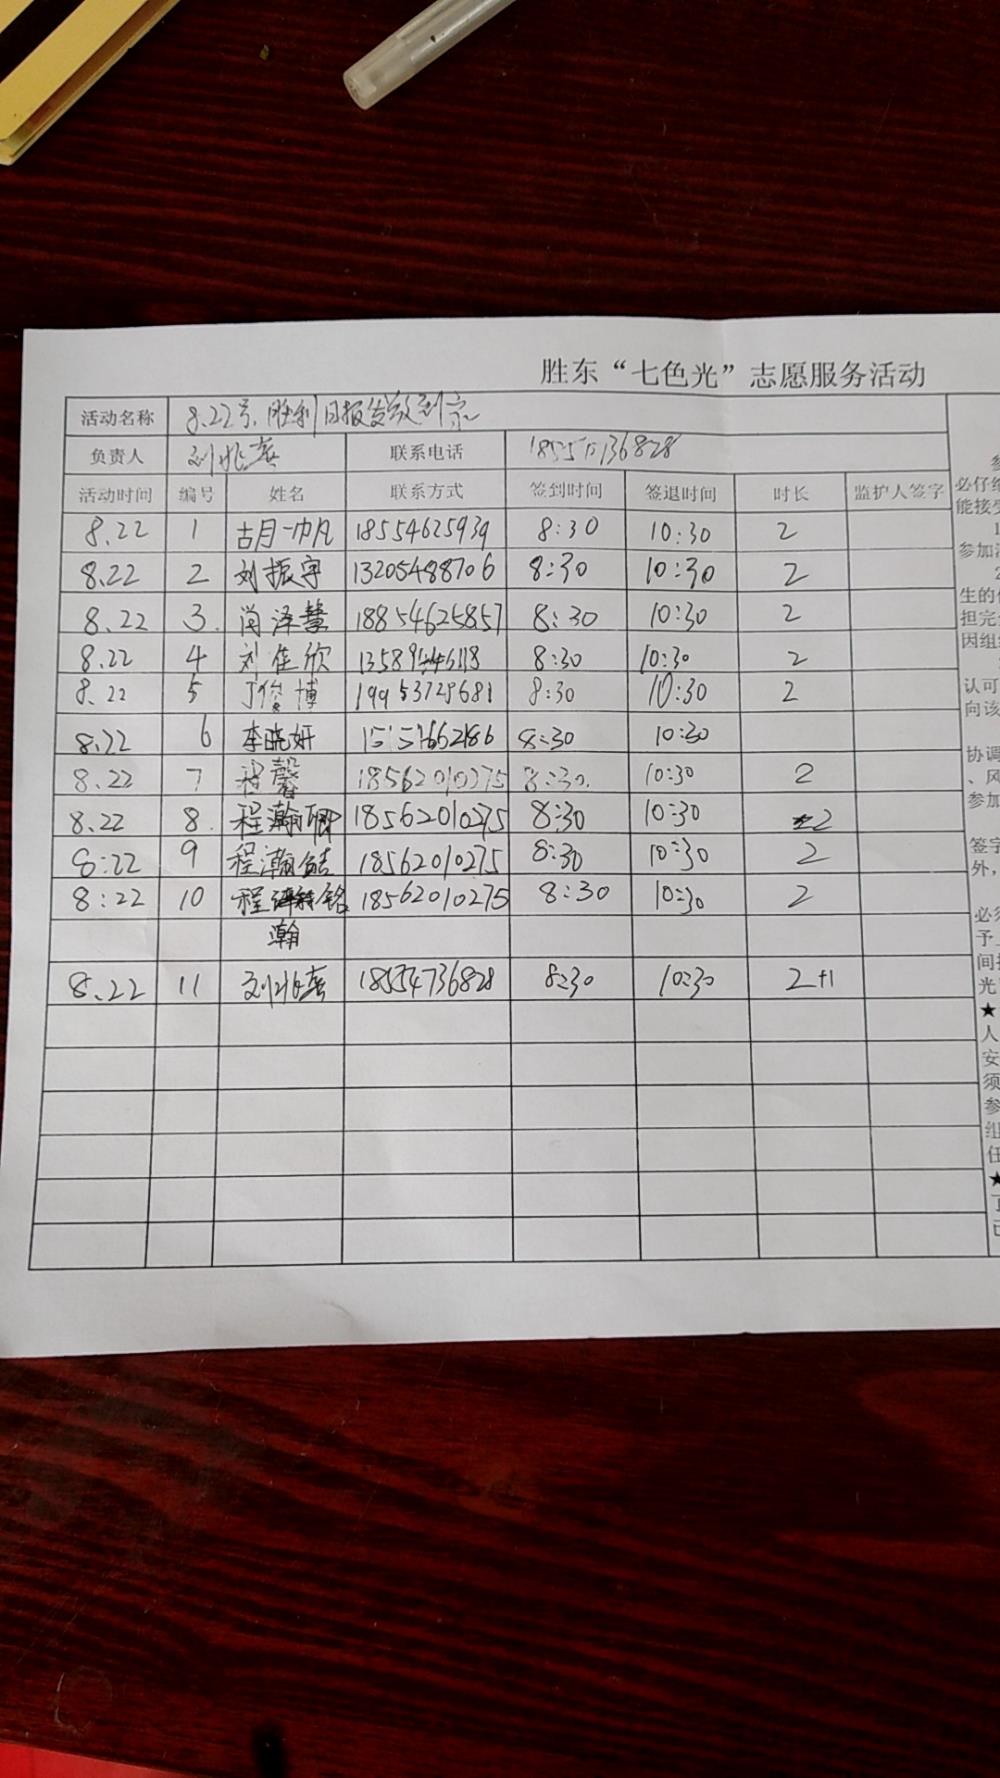 胜东“七色光”志愿服务活动
活动名称 8.22号,胜利日报发放到家
负责人 联系电话
活动时间 编号 姓名 联系方式 签到时间 签退时间 时长 监护人签字
8.22 1 古月一巾凡 18554625939 8:30 10:30 2
8.22 2 刘振宇 13205488706 8:30 10:30 2
8.22 3. 尚泽慧 18854625857 8:30 10:30 2
8.22 4 刘佳欣 8:30 10:30 2
8.22 5 丁俊博 19953729681 8:30 10:30 2
8.22 6 李晓妍 8:30 10:30
8.22 7 程馨 18562010275 8:30. 10:30 2
8.22 8. 程瀚卿 18562010275 8:30 10:30 2
8:22 9 程瀚 18562010275 8:30 10:30 2
8:22 10 程 铭 18562010275 8:30 10:30 2
瀚
8.22 11 18554736828 8:30 10:30 2+1
必仔细
能接受
参加活
生的
担完全
因组织
认可
向该
协调
、风
参加
签字
外,
必须
予
间
光
★
人
安
须
参
组
任
★